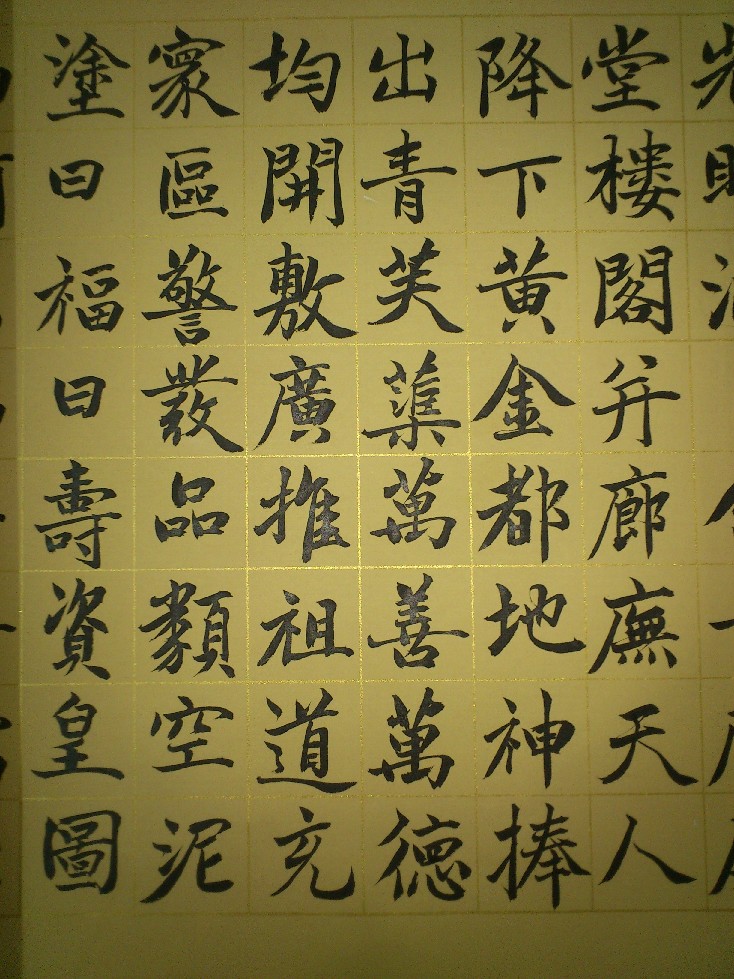 堂樓閣并廊廡天人
降下黃金都地神捧
出青芙蕖萬善萬德
均開敷廣推祖道充
寰區警發品類空泥
塗曰福曰壽資皇圖